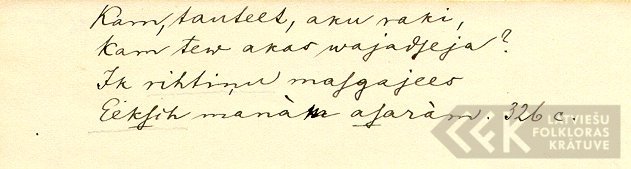 Kam, tauteet, aku raki,
kam tew akas wajadſeja?
Ik rihtiņu maſgajees
Eekſch manàm aſaràm. 326 c.
LATVIEŠU
FOLKLORAS
KRĀTUVE